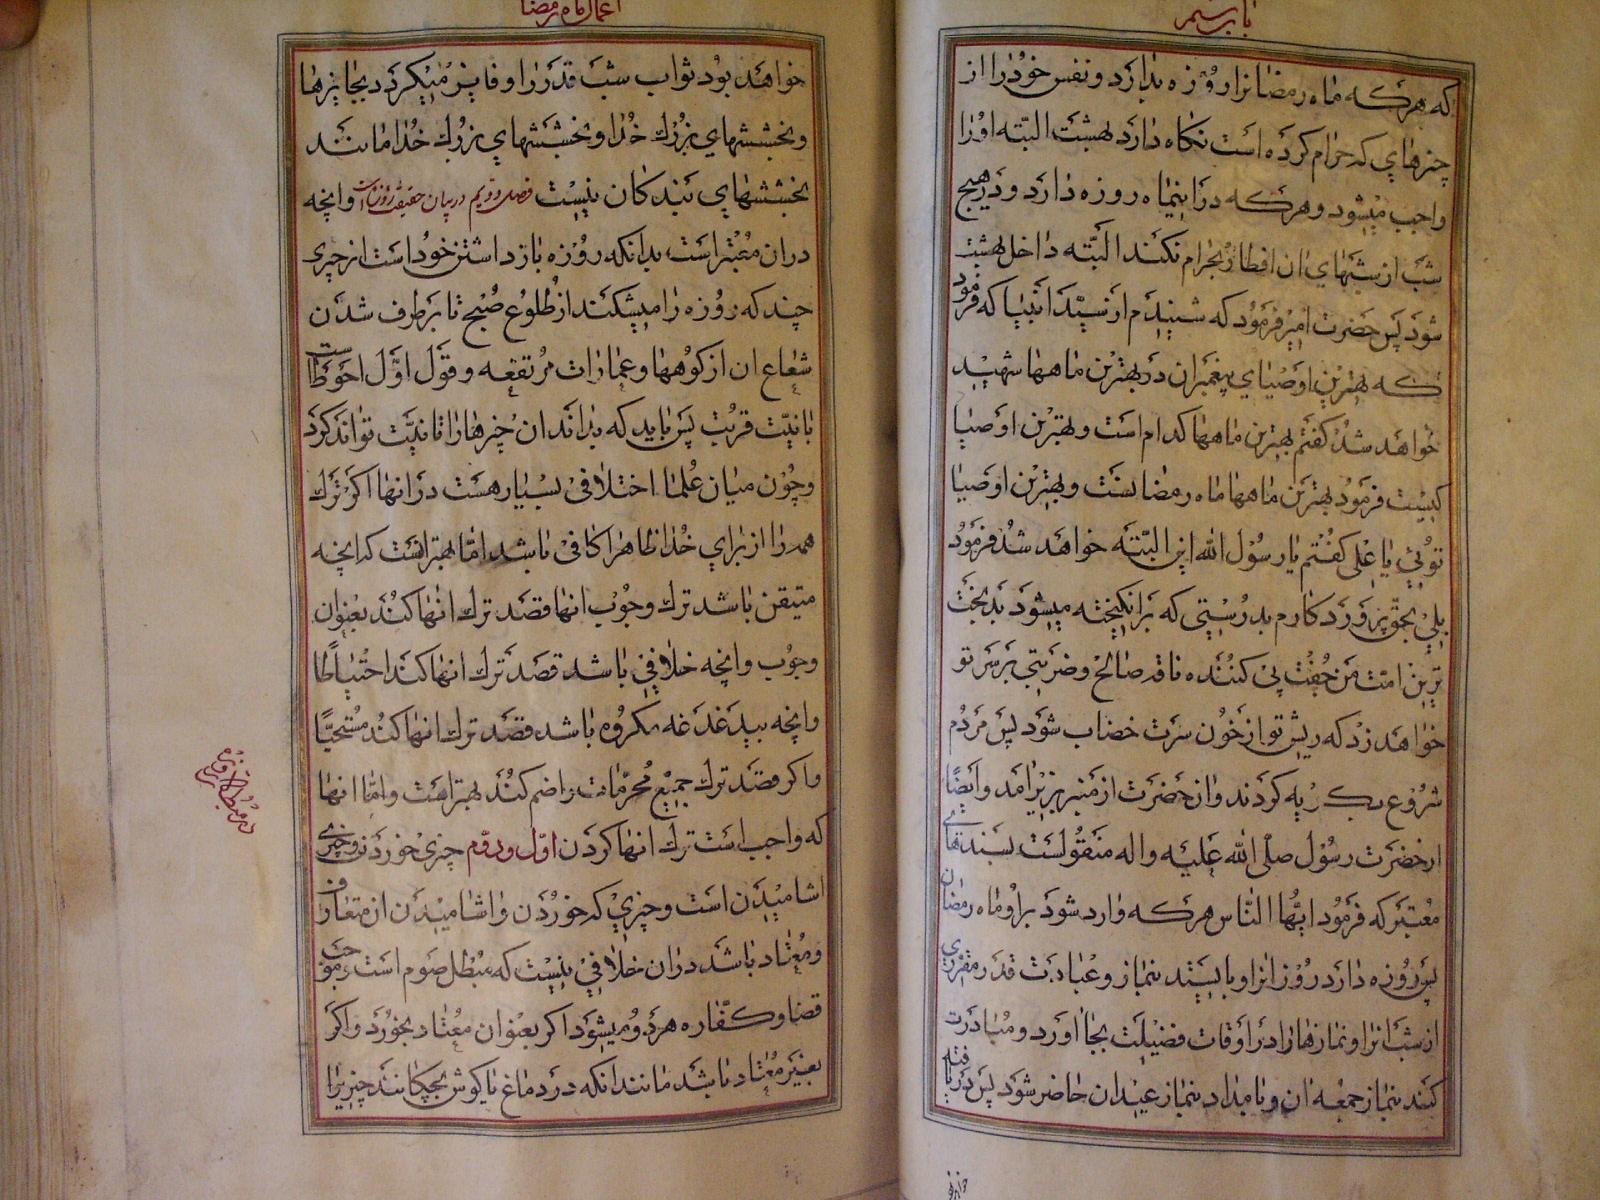 باب سیم
که هرکه ماه رمضانرا روزه بدارد و نفس خود را از
چیزهایی که حرام کرده است نگاه دارد بهشت البته او را
واجب میشود و هرکه در اینماه روزه دارد و در هیچ
شب از شبهای ان افطار بحرام نکند البته داخل بهشت
شود پس حضرت امیر فرمود که شنیدم از سید انبیا که فرمود
که بهترین اوصیای پیغمبران در بهترین ماهها شهید
خواهد شد گفتم بهترین ماهها کدام است و بهترین اوصیا
کیست فرمود بهترین ماهها ماه رمضانست و بهترین اوصیا
توئی یا علی گفتم یا رسول الله این البته خواهد شد فرمود
بلی بحق پروردکارم بدرستی که برانکیخته میشود بدبخت
ترین امت من جفت پی کننده ناقه صالح و ضربتی بر سر تو
خواهد زد که ریش تو از خون سرت خضاب شود پس مردم
شروع بکریه کردند وان حضرت از منبر بزیر امد وایضا
از حضرت رسول صلی الله علیه واله منقولست بسندهای
معتبر که فرمود ایها الناس هرکه وارد شود بر او ماه رمضان
پس روزه دارد روز انرا و بایستد بنماز و عبادت قدر مقرری
از شب انرا و نمازها را در اوقات فضیلت بجا اورد و مبادرت
کند بنماز جمعه ان و بامداد بنماز عیدان حاضر شود پس دریافته
اعمال ماه رمضان
خواهد بود ثواب شب قدر را و فایز میکردد بجایزها
و بخششهای بزرک خدا و بخششهای بزرک خدا مانند
بخششهای بندکان نیست فصل دویم در بیان حقیقت روزه است وانچه
دران معتبر است بدانکه روزه بازداشتن خود است از چیزی
چند که روزه را میشکند از طلوع صبح تا برطرف شدن
شعاع ان از کوهها و عمارات مرتفعه و قول اول احوط است
با نیت قربت پس باید که بداند ان چیزها را تا نیت تواند کرد
و چون میان علما اختلافی بسیار هست در انها اکر ترک
همه را از برای خدا ظاهرا کافی باشد اما بهتر انست که انچه
متیقن باشد ترک وجوب انها قصد ترک انها کند بعنوان
وجوب وانچه خلافی باشد قصد ترک انها کند احتیاطا
وانچه بیدغدغه مکروه باشد قصد ترک انها کند مستحبا
واکر قصد ترک جمیع محرمات را ضم کند بهتر است واما انها
که واجب است ترک انها کردن اول و دوم چیزی خوردن و چیزی
اشامیدن است و چیزی که خوردن و اشامیدن ان متعارف
و معتاد باشد دران خلافی نیست که مبطل صوم است و موجب
قضا و کفاره هر دو میشود اکر بعنوان معتاد بخورد واکر
بغیر معتاد باشد مانند انکه در دماغ یا کوش بچکانند چیزیرا